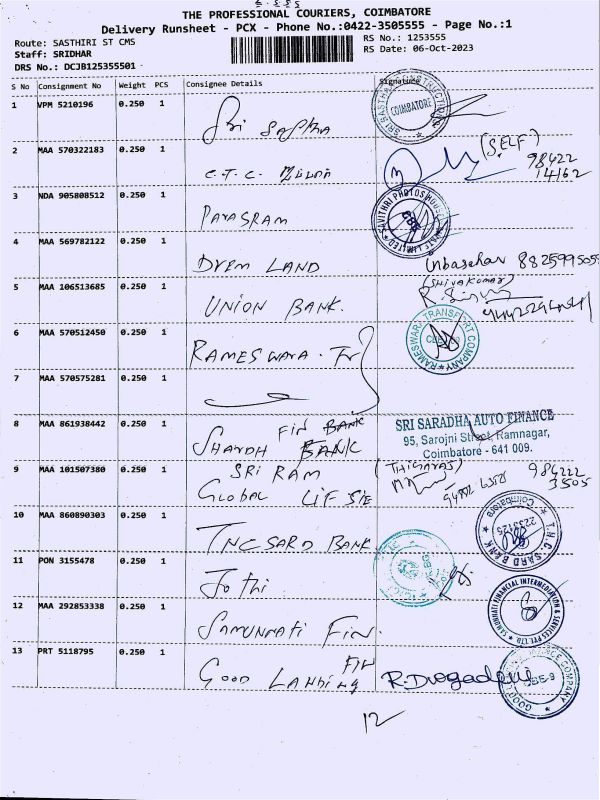 THE PROFESSIONAL COURIERS, COIMBATORE
Delivery Runsheet - PCX - Phone No.:0422-3505555 - Page No.:1
Route: SASTHIRI ST CMS
RS No.: 1253555
Staff: SRIDHAR
RS Date: 06-Oct-2023
DRS No.: DCJB125355501
S No Consignment No Weight PCS Consignee Details Signature
1 VPM 5210196 0.250 1 Sri Sastha
COIMBATORE
2 MAA 570322183 0.250 1 C.T.C.
(SELF)
98422
14162
3 NDA 905808512 0.250 1 PARASRAM
SAVITHRI PHOTOS HOUSE PRIVATE LIMITED
4 MAA 569782122 0.250 1 DREM LAND
Inbasekar 8825995055
5 MAA 106513685 0.250 1 UNION BANK.
(SHIVAKUMAR)
6 MAA 570512450 0.250 1 RAMESWARA
RAMESWARY TRANSPORT COMPANY
7 MAA 570575281 0.250 1
8 MAA 861938442 0.250 1 SHARDH FIN BANK
BANK
SRI SARADHA AUTO FINANCE
95, Sarojni Street, Ramnagar,
Coimbatore - 641 009.
9 MAA 101507380 0.250 1 SRI RAM
GLOBAL LIF
(THIGARAJ)
984222
3505
10 MAA 860890303 0.250 1 TNCSARD BANK
T.N.C. SARD BANK
Coimbatore
2233125
11 PON 3155478 0.250 1 Jothi
12 MAA 292853338 0.250 1 SAMUNNATI FIN.
SAMUNNATI FINANCIAL INTERMEDIATION & SERVICES PVT LTD
13 PRT 5118795 0.250 1 GOOD LANDING FIN
12